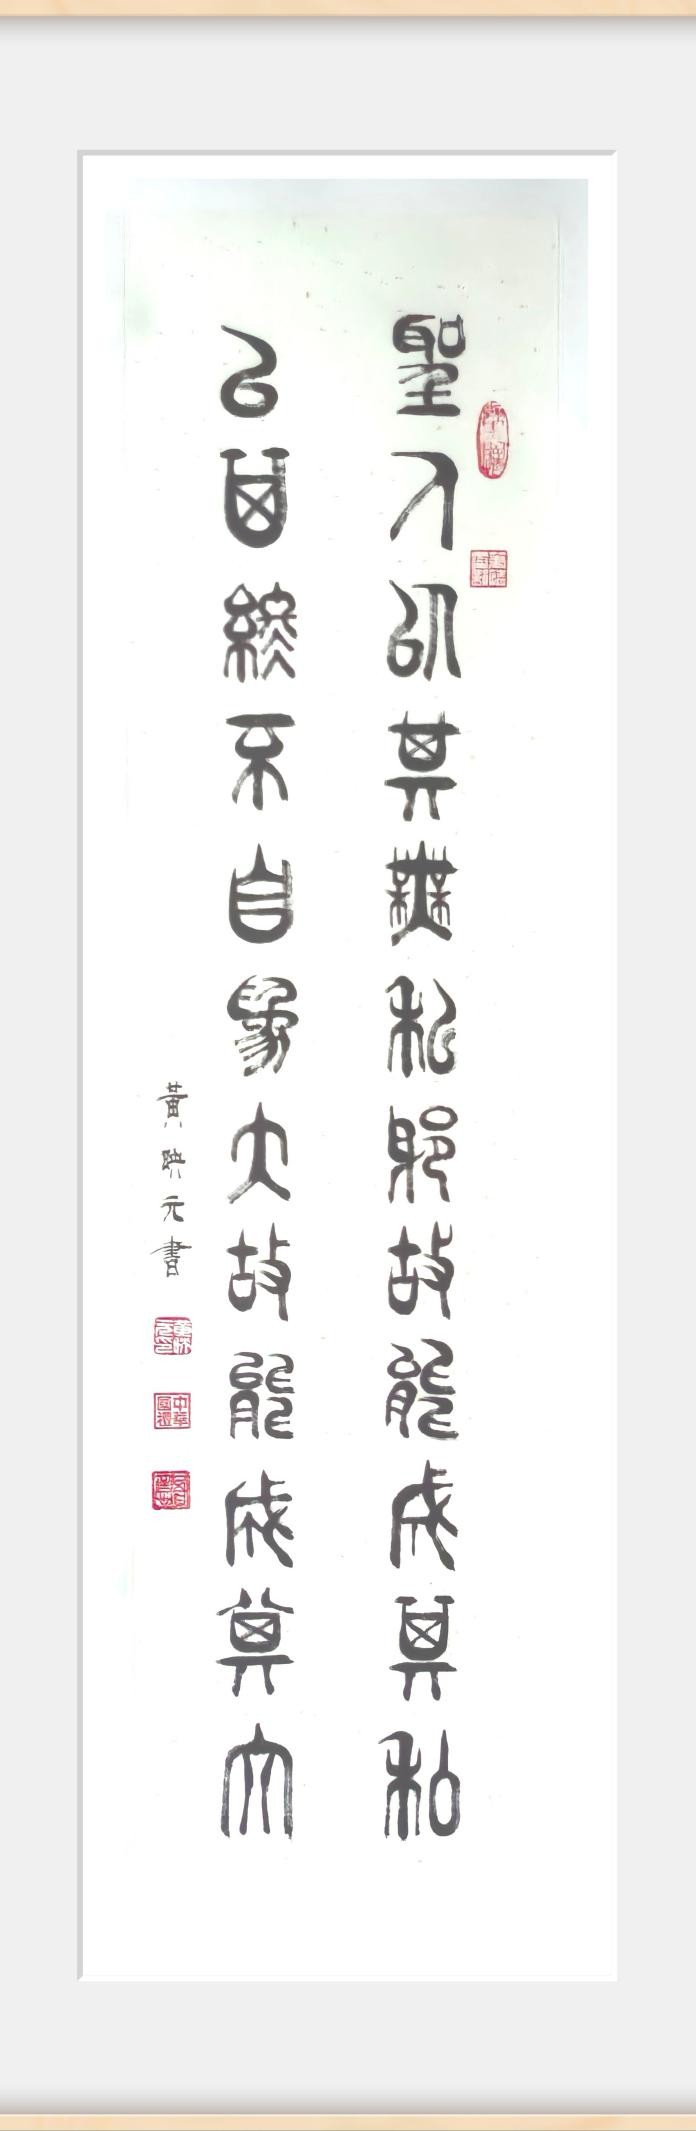 聖人以其無私邪故能成其私
以其終不自為大故能成其大
黃映元書